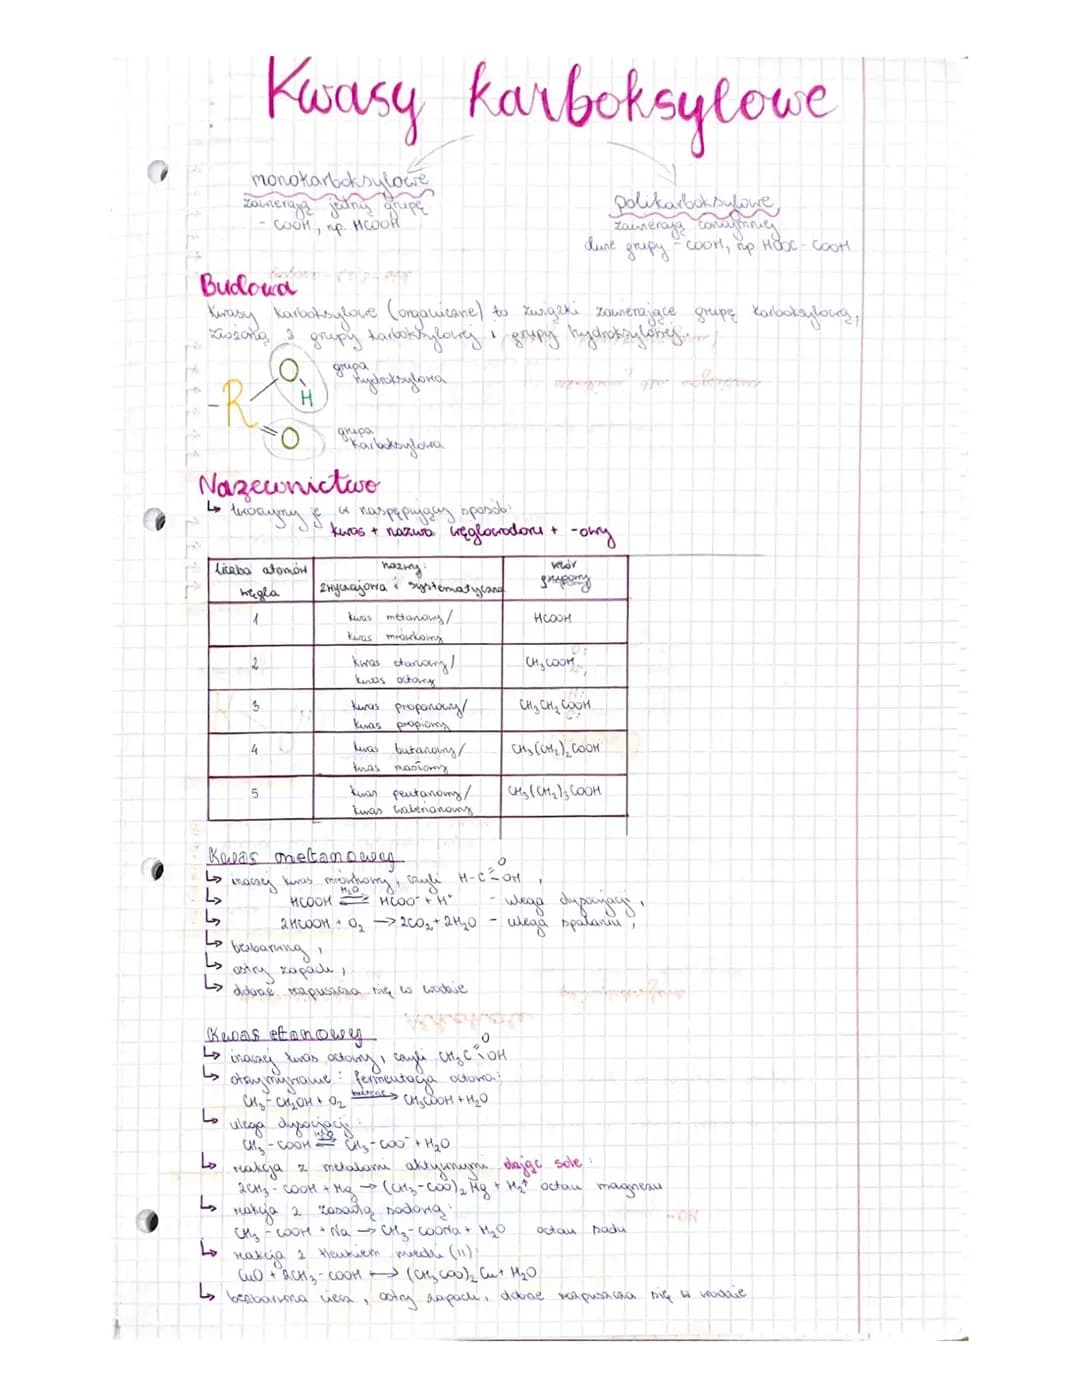 Kwasy karboksylowe
monokarboksylowe
zawierają jedną grupę
- COOH, np. HCOOH
polikarboksylowe
zawierają conajmniej
dwie grupy - COOH, np. HOOC - COOH
Budowa
Kwasy karboksylowe (organiczne) to związki zawierające grupę karboksylową,
złożoną z grupy karboksylowej i grupy hydroksylowej.
- R O H
grupa
hydroksylowa
= O
grupa
karboksylowa
Nazewnictwo
↳ tworzymy je w następujący sposób:
kwas + nazwa węglowodoru + -owy
liczba atomów węgla
nazwy: zwyczajowa i systematyczna
wzór grupowy
1
kwas metanowy/
kwas mrówkowy
HCOOH
2
kwas etanowy/
kwas octowy
CH₃COOH
3
kwas propanowy/
kwas propiony
CH₃CH₂COOH
4
kwas butanowy/
kwas masłowy
CH₃(CH₂)₂COOH
5
kwas pentanowy/
kwas walerianowy
CH₃(CH₂)₃COOH
Kwas metanowy
↳ inaczej kwas mrówkowy, czyli H-C=O OH,
↳ HCOOH ⇌ H₂O HCOO⁻ + H⁺ - ulega dysocjacji,
↳ 2HCOOH + O₂ → 2CO₂ + 2H₂O - ulega spalaniu,
↳ bezbarwny,
↳ ostry zapach,
↳ dobrze rozpuszcza się w wodzie
Kwas etanowy
↳ inaczej kwas octowy, czyli CH₃C=O OH
↳ otrzymywanie: fermentacja octowa:
CH₃-CH₂OH + O₂ bakterie→ CH₃COOH + H₂O
↳ ulega dysocjacji:
CH₃-COOH ⇌ H₂O CH₃-COO⁻ + H₂O
↳ reakcja z metalami aktywnymi dając sole:
2CH₃-COOH + Mg → (CH₃-COO)₂Mg + H₂↑ octan magnezu
↳ reakcja z zasadą sodową:
CH₃-COOH + Na → CH₃-COONa + H₂O octan sodu
↳ reakcja z tlenkiem miedzi (II):
CuO + 2CH₃-COOH → (CH₃COO)₂Cu + H₂O
↳ bezbarwna ciecz, ostry zapach, dobrze rozpuszcza się w wodzie